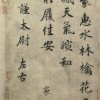 蒙惠水林檎花
感天氣暄和
體履佳安 襄
謹太尉 左右